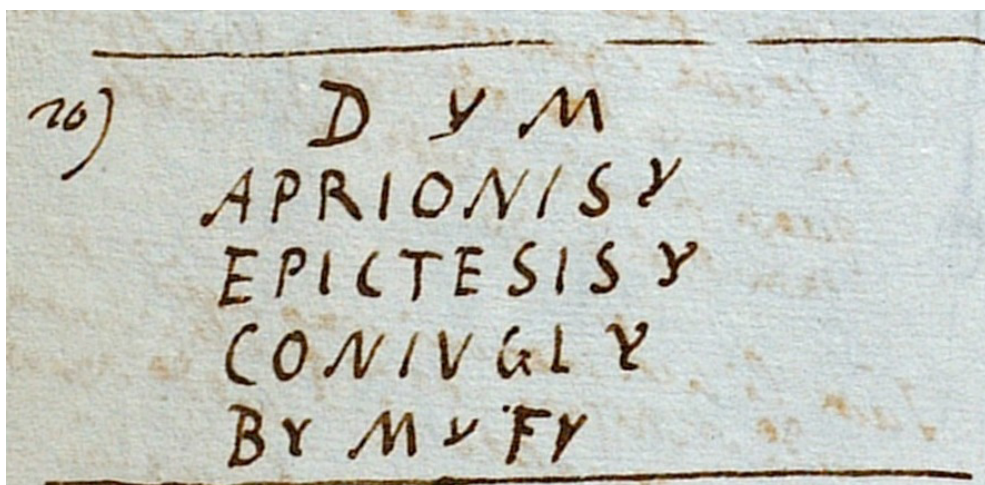 20) D Y M
APRIONIS Y
EPICTESIS Y
CONIVGL Y
B Y M Y F Y